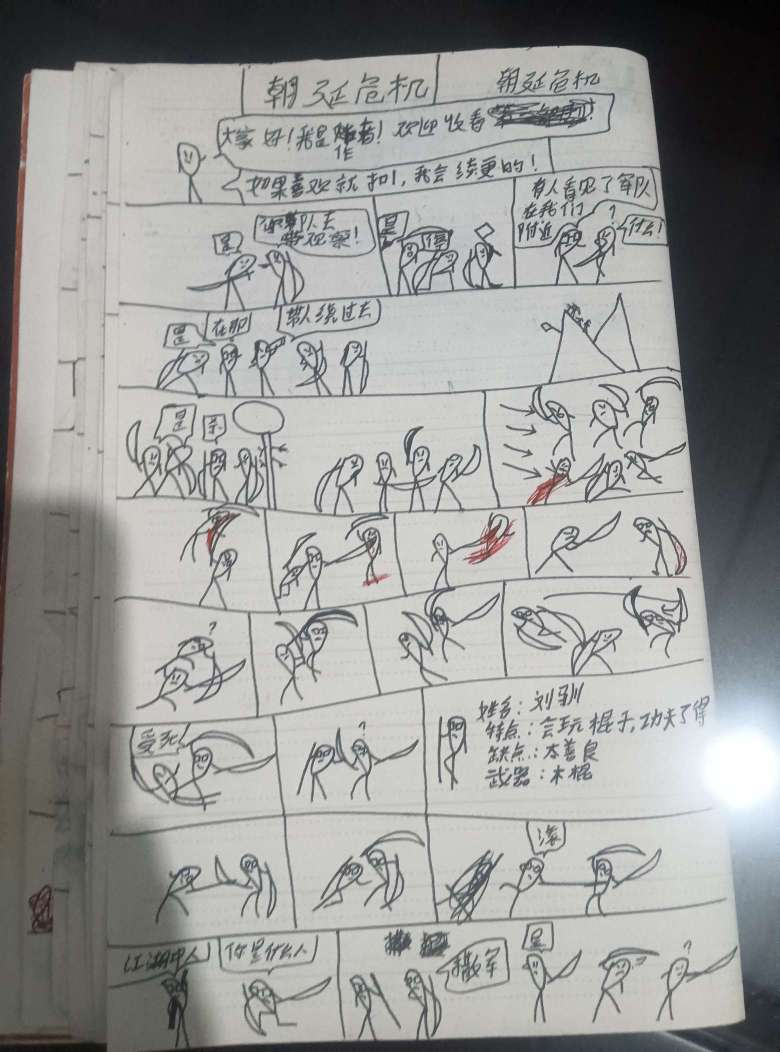 朝延危机
朝延危机
大家好！我是作者！欢迎收看
如果喜欢就扣1，我会续更的！
是
队去
观察！
是
停
有人看见了军队
在我们
附近
?
什么！
是
在那
带人绕过去
是
杀
?
受死！
?
姓名：刘驯
特点：会玩棍子，功夫了得
缺点：太善良
武器：木棍
滚
江湖中人
你是什么人
撤军
是
?